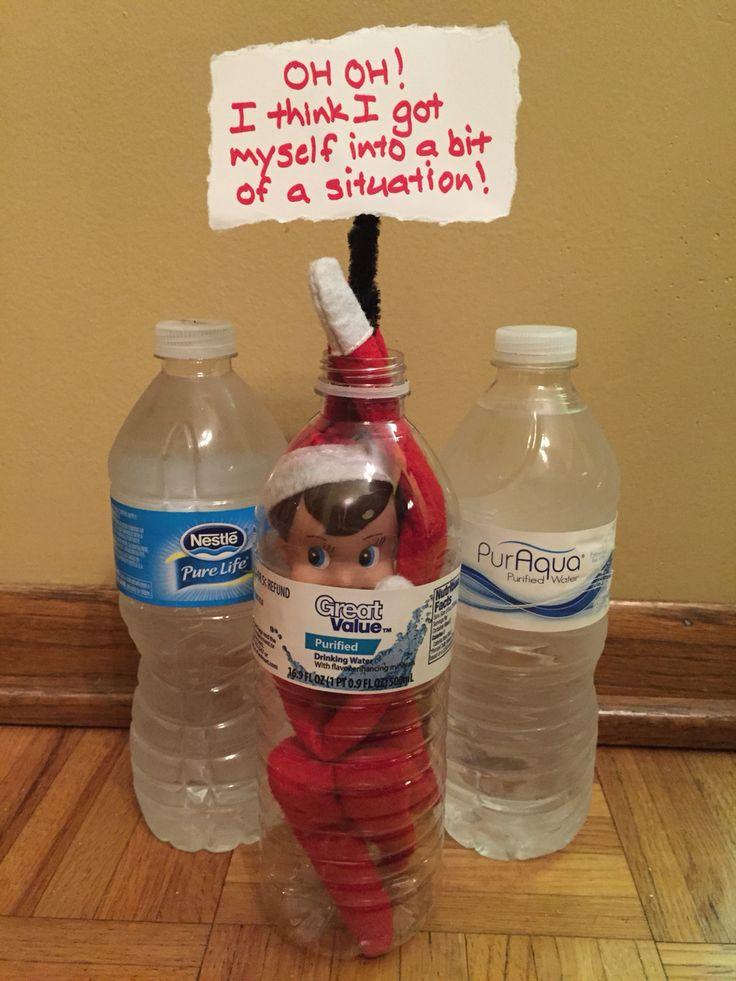 OH OH!
I think I got
myself into a bit
of a situation!
Nestlé
Pure Life
5¢ REFUND
Great
Value™
Purified
Drinking Water
With flavor enhancing
16.9 FL OZ (1 PT 0.9 FL OZ) 500mL
Nutrition
Facts
PurAqua®
Purified Water